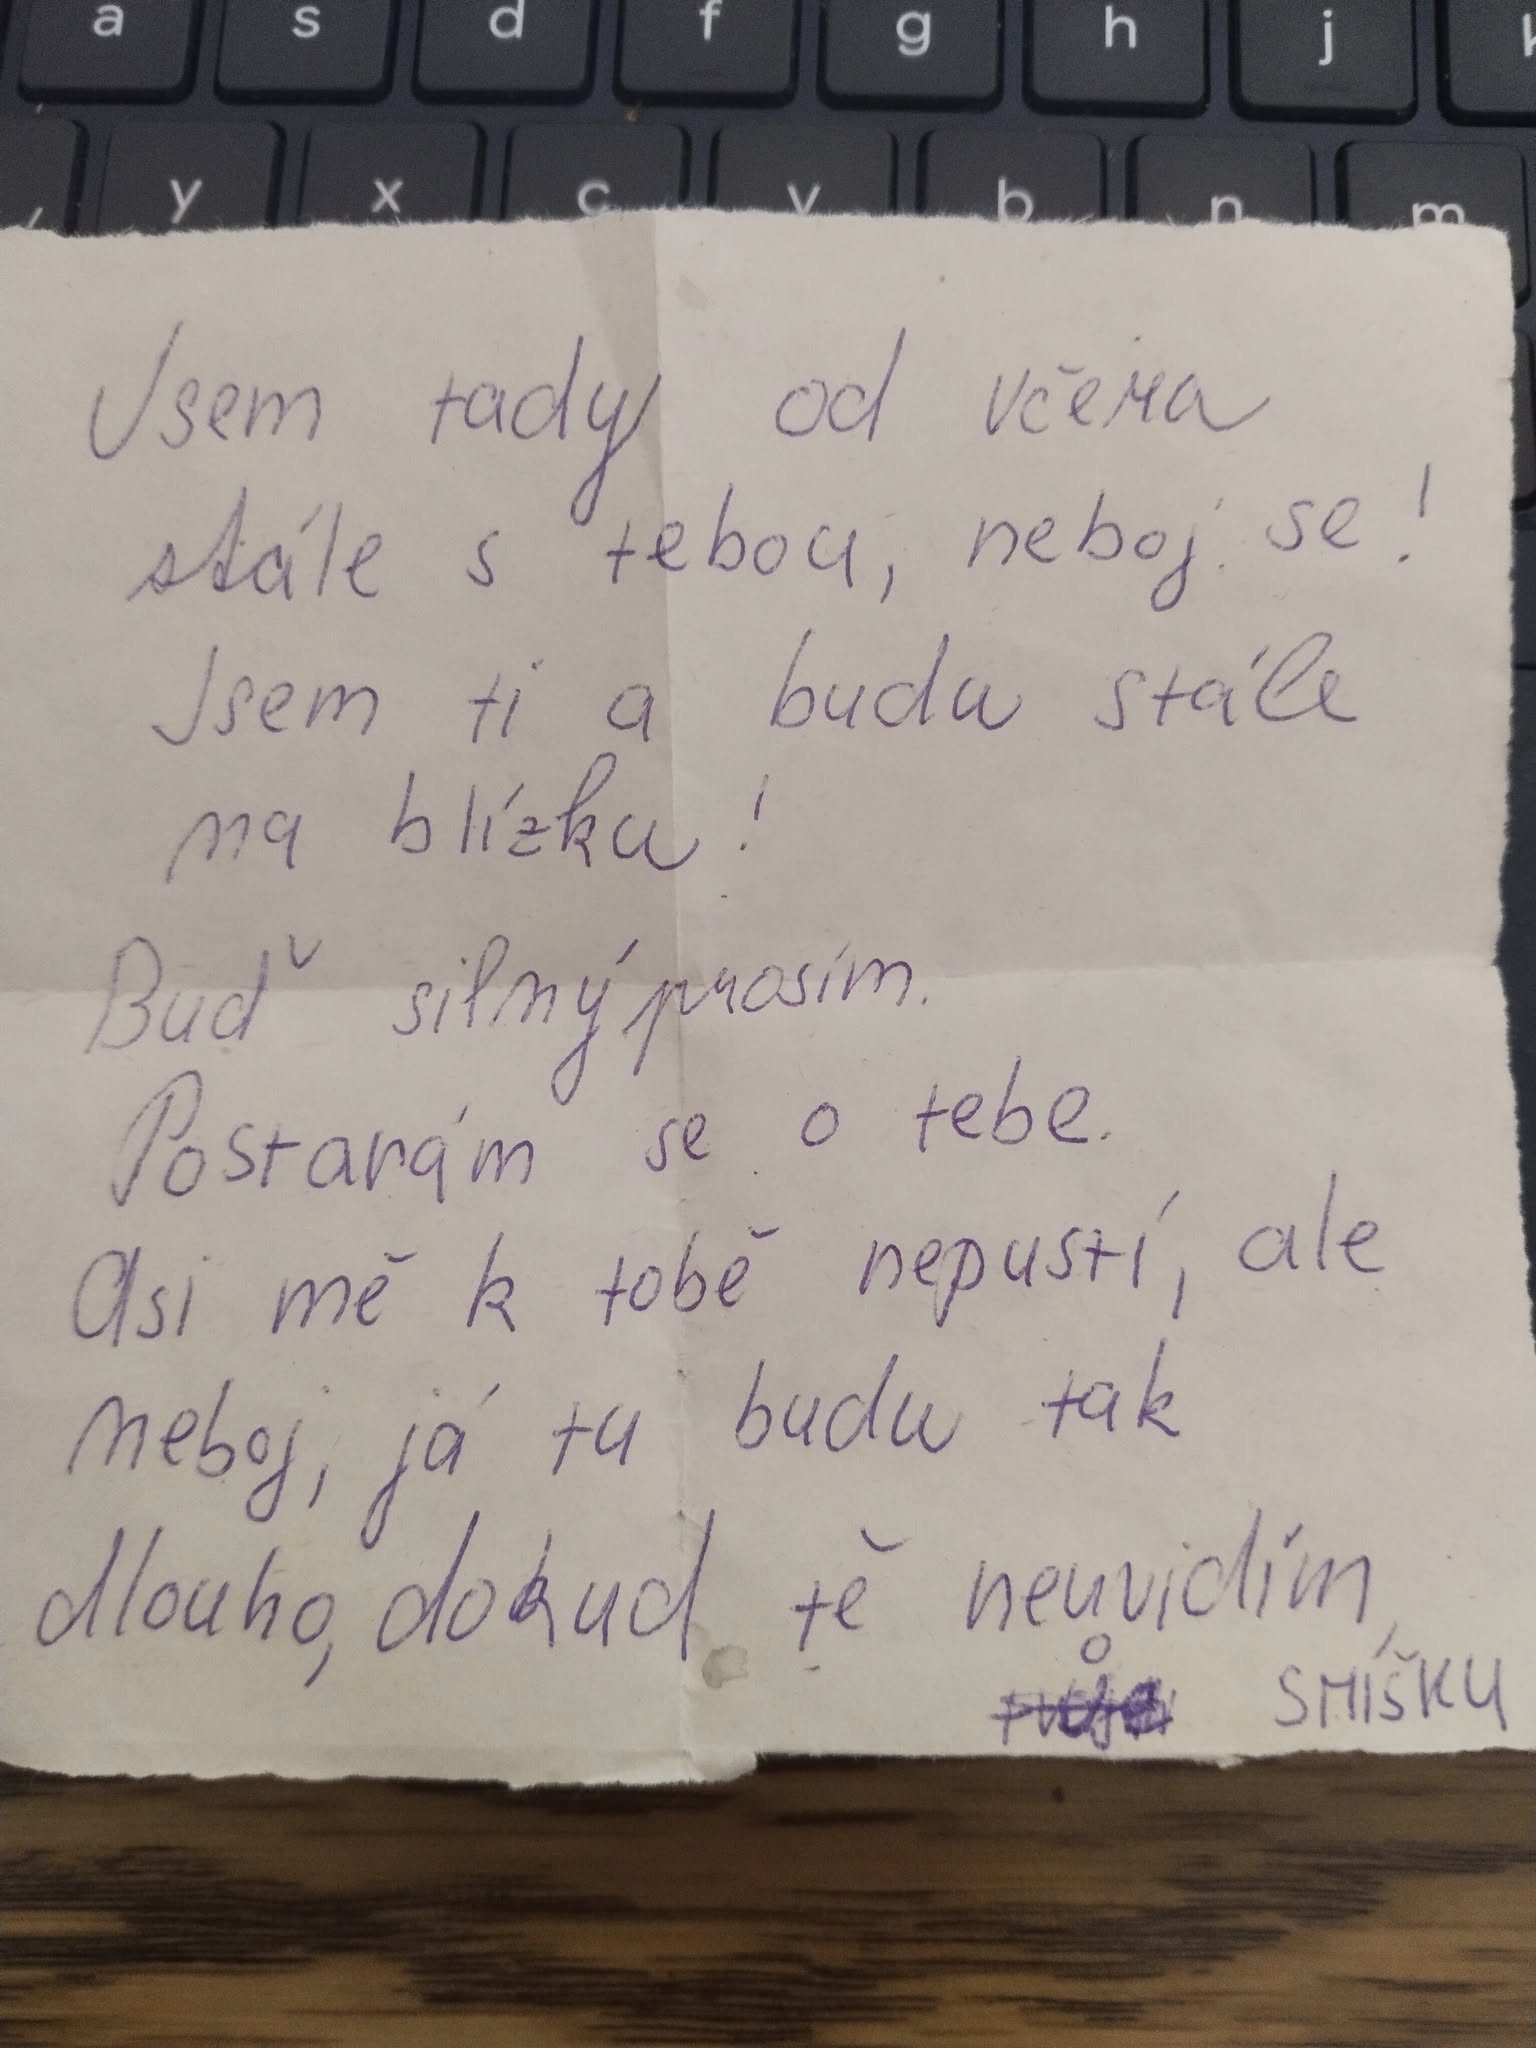 a s d f g h j
y x c v b n m
Jsem tady od včera
stále s tebou, neboj se!
Jsem ti a budu stále
na blízku!
Buď silný prosím.
Postarám se o tebe.
Asi mě k tobě nepustí, ale
neboj, já tu budu tak
dlouho, dokud tě neuvidím,
SMÍŠKU